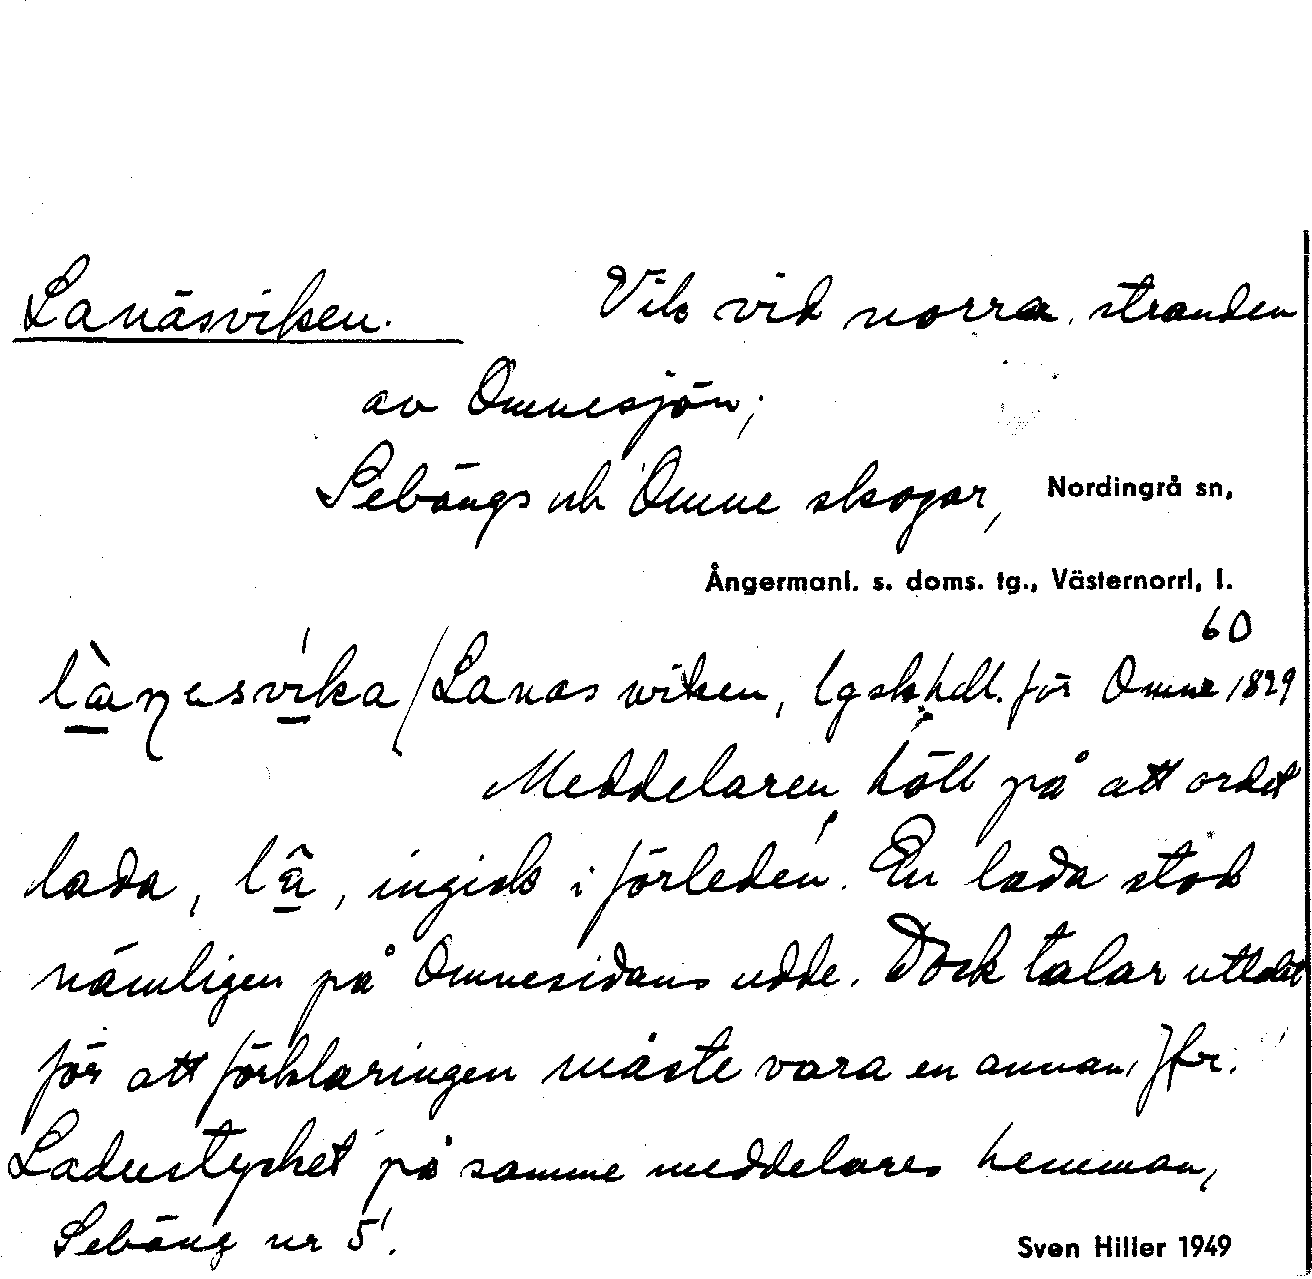 Lanäsviken. Vik vid norra stranden
av Omnesjön;
Sebångs och Omne skogar, Nordingrå sn,
Ångermanl. s. doms. tg., Västernorrl, l.
60
Lanäs viken, lgskhdl. för Omne 1829
Meddelaren höll på att ordet
lada, lâ, ingick i förleden. En lada stod
nämligen på Omnesidans udde. Dock talar uttalet
för att förklaringen måste vara en annan, Jfr.
Ladustycket på samme meddelares hemman,
Sebång nr 5.
Sven Hiller 1949